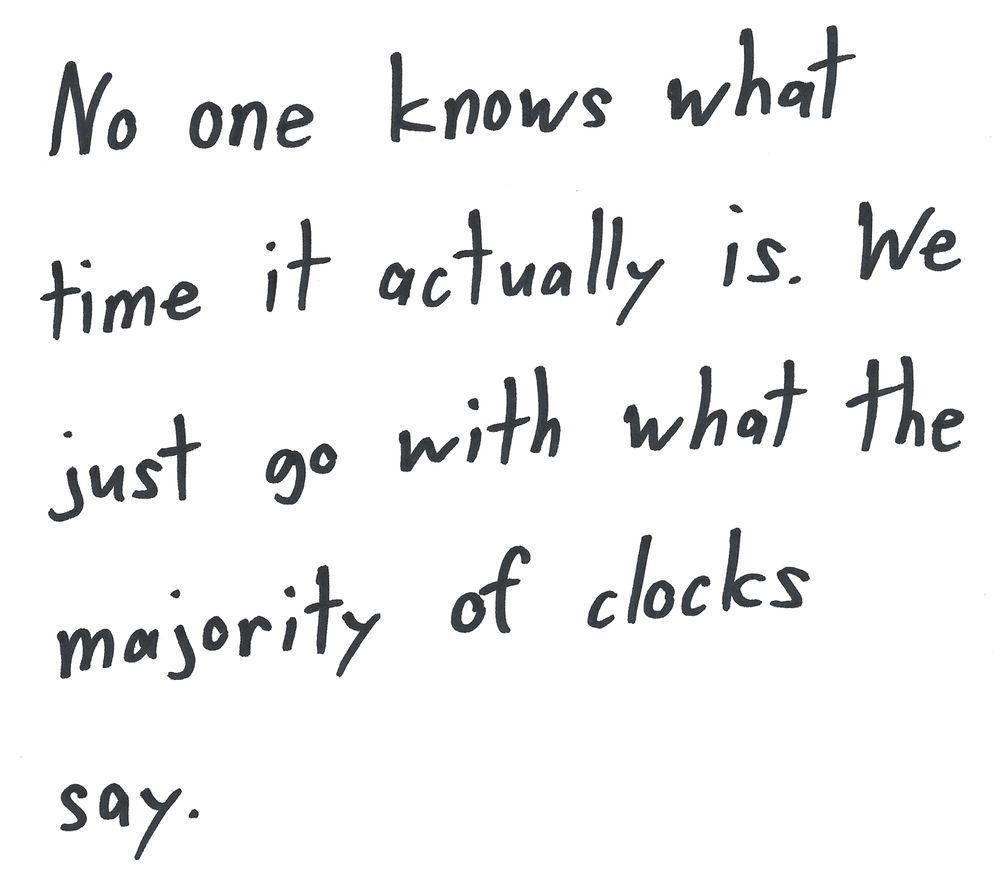 No one knows what
time it actually is. We
just go with what the
majority of clocks
say.